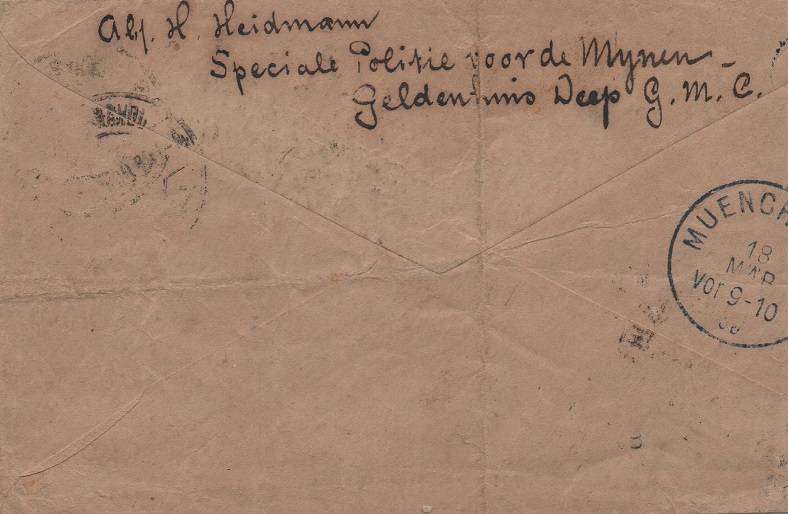 Abs. H. Heidmann
Speciale Politie voor de Mynen -
Geldenhuis Deep G. M. C.
MUENCH
18
MAR
vor 9-10